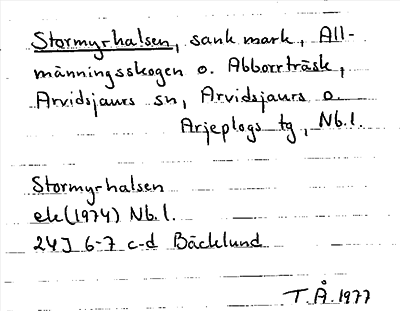 Stormyrhalsen, sank mark, All-
männingsskogen o. Abborrträsk,
Arvidsjaurs sn, Arvidsjaurs o.
Arjeplogs tg, Nb.l.
Stormyrhalsen
ek(1974) Nb.l.
24J 6-7 c-d Bäcklund
T.Å.1977